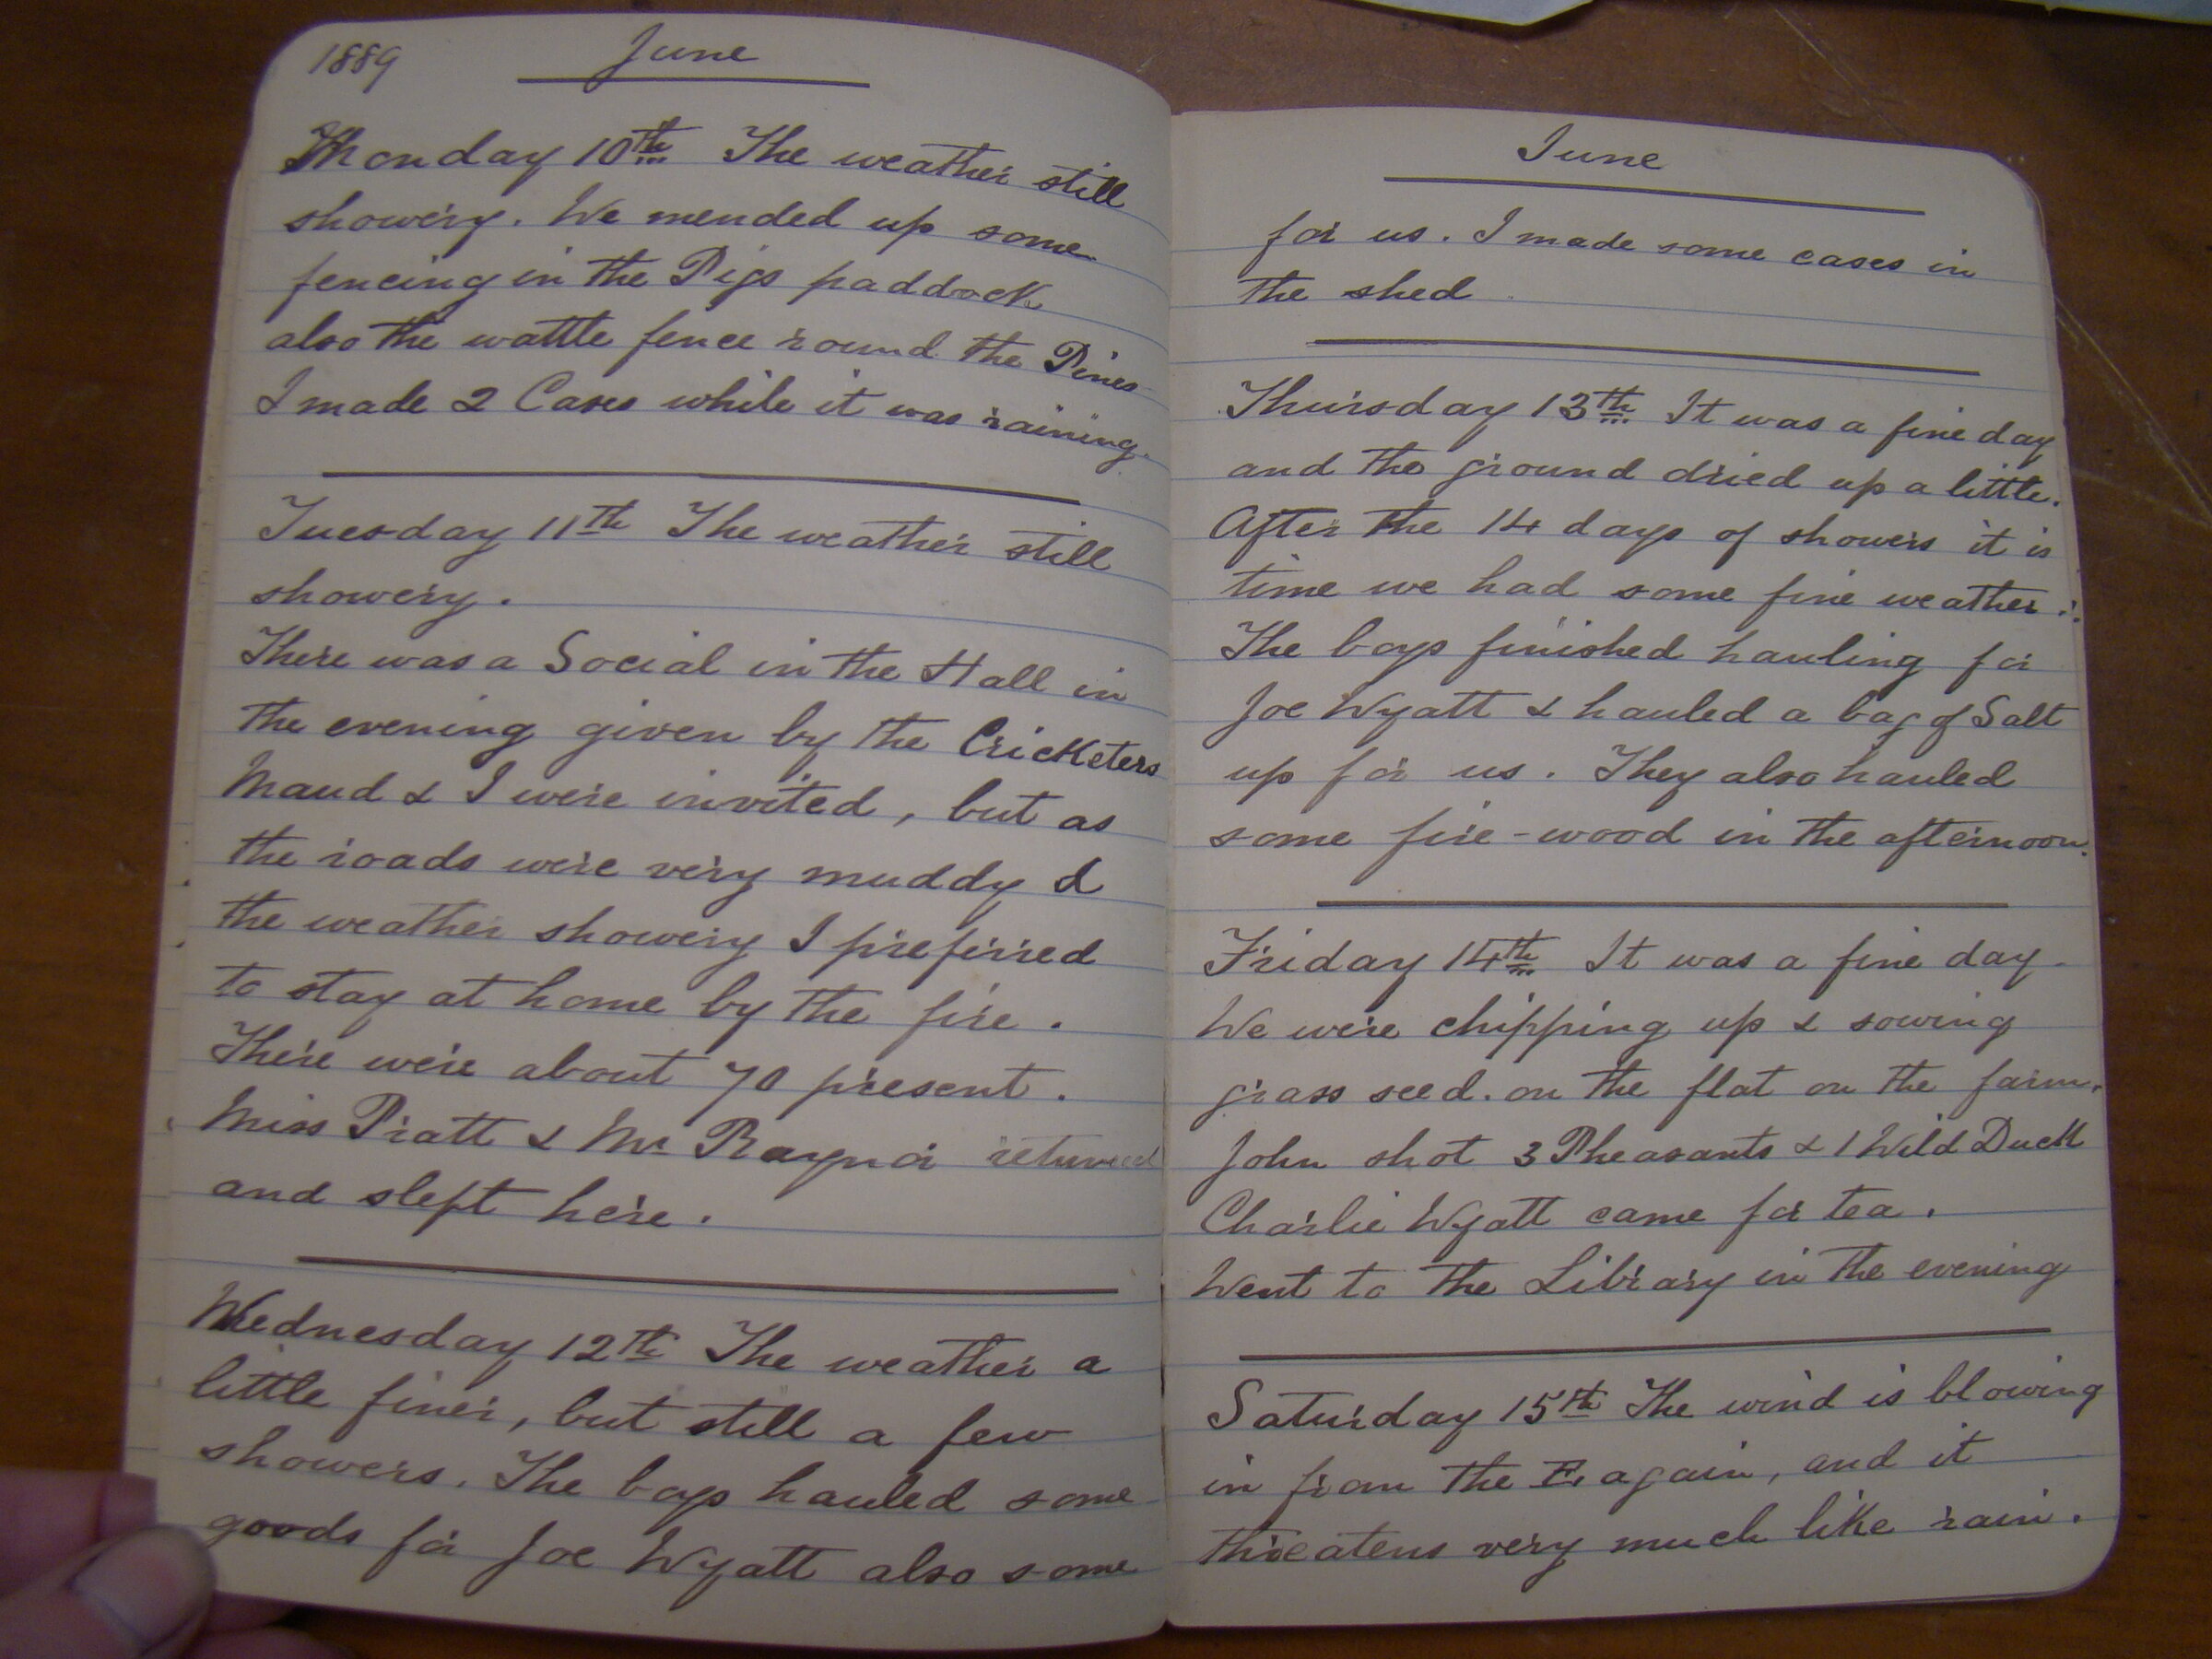 1889 June
Monday 10th The weather still
showery. We mended up some
fencing in the Pigs paddock
also the wattle fence round the Pines
I made 2 Cases while it was raining.
Tuesday 11th The weather still
showery.
There was a Social in the Hall in
the evening given by the Cricketers
Maud & I were invited, but as
the roads were very muddy &
the weather showery I preferred
to stay at home by the fire.
There were about 70 present.
Miss Pratt & Mr Raynor returned
and slept here.
Wednesday 12th The weather a
little finer, but still a few
showers. The boys hauled some
goods for Joe Wyatt also some
June
for us. I made some cases in
the shed
Thursday 13th It was a fine day
and the ground dried up a little.
After the 14 days of showers it is
time we had some fine weather.
The boys finished hauling for
Joe Wyatt & hauled a bag of Salt
up for us. They also hauled
some fire-wood in the afternoon.
Friday 14th It was a fine day.
We were chipping up & sowing
grass seed. on the flat on the farm.
John shot 3 Pheasants & 1 Wild Duck
Charlie Wyatt came for tea.
Went to the Library in the evening
Saturday 15th The wind is blowing
in from the E. again, and it
threatens very much like rain.